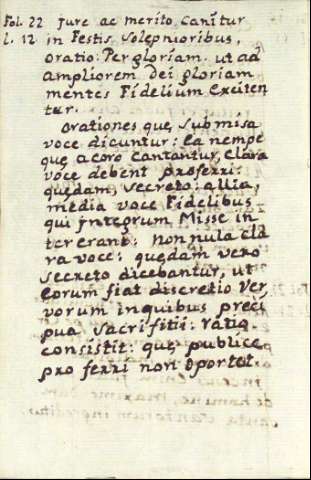 Fol. 22 jure ac merito Canitur
l. 12 in Festis Solepnioribus,
oratio: Per gloriam. ut ad
ampliorem Dei gloriam
mentes Fidelium Exciten
tur.
orationes que, submisa
voce dicuntur: Ea nempe
que a coro Cantantur, Clara
voce debent proferri:
quędam, secreto: allia,
media voce Fidelibus
qui ynteprum Misse in
tererant: non nula Cla
ra voce: quędam vero
secreto dicebantur, ut
Eorum fiat discretio ver
vorum in quibus preci
pua Sacrifitii: ratio.
Consistit: que, publice
pro ferri non oportet.